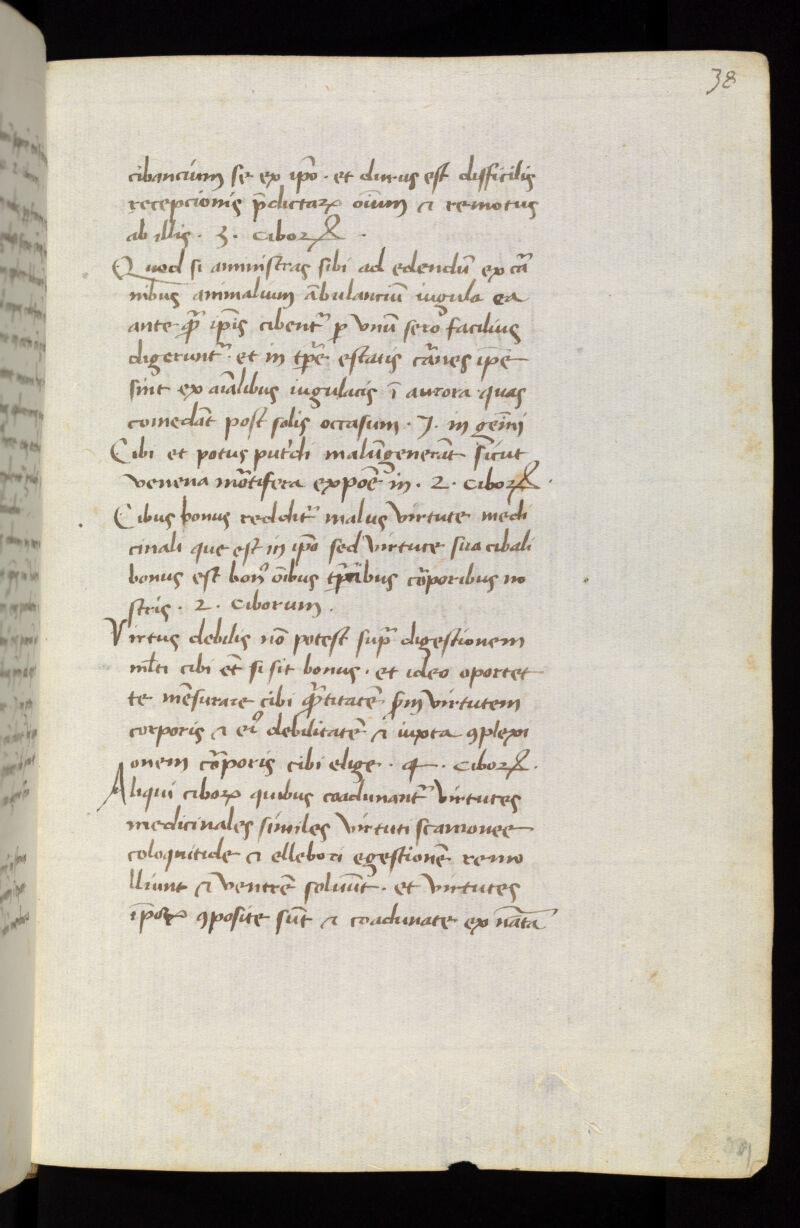 38
cibancium se ex ip̄o · et durus est difficilis
recepcionis p̄dictaꝝ oīum ⁊ remotus
ab illis · 3 · ciboꝝ ·
Quod si aministras sibi ad edendū ex cā
nibus animalium ābulanciū iugula ea
ante q̄ ip̄is cibent᷑ p vnū sero facilius
digerunt᷑ · et in tp̄e estatis cānes ip̄e
sint ex aīalibus iugulatis ī aurora quas
comedāt post solis occasum · 7 · in gēmi
Cibi et potus put'di malū generāt sicut
venena mōtifera expoē in · 2 · ciboꝝ ·
Cibus bonus reddit᷑ malus virtute medi
cinali que est in ip̄o sed virtute sua cibali
bonus est bon᷒ oībus corporibus no
stris · 2 · Ciborum ·
Virtus debilis nō potest sup̄ digestionem
ml̄ti cibi et̄ si sit bonus · et ideo oportet
te mēsurare cibi q̄titatē s̄m virtutem
corporis ⁊ ei᷒ debilitatē ⁊ iuxta ꝯplexi
onem cōporis cibi elige · 4 · ciboꝝ ·
Aliqui ciboꝝ quibus coadunant᷑ virtutes
medicinales similes virtuti scamonee
coloquitide ⁊ ellebori egestionē remo
lliunt ⁊ ventrē soluūt · et virtutes
ip̄oꝝ ꝯposite sūt ⁊ coadunate ex nāta